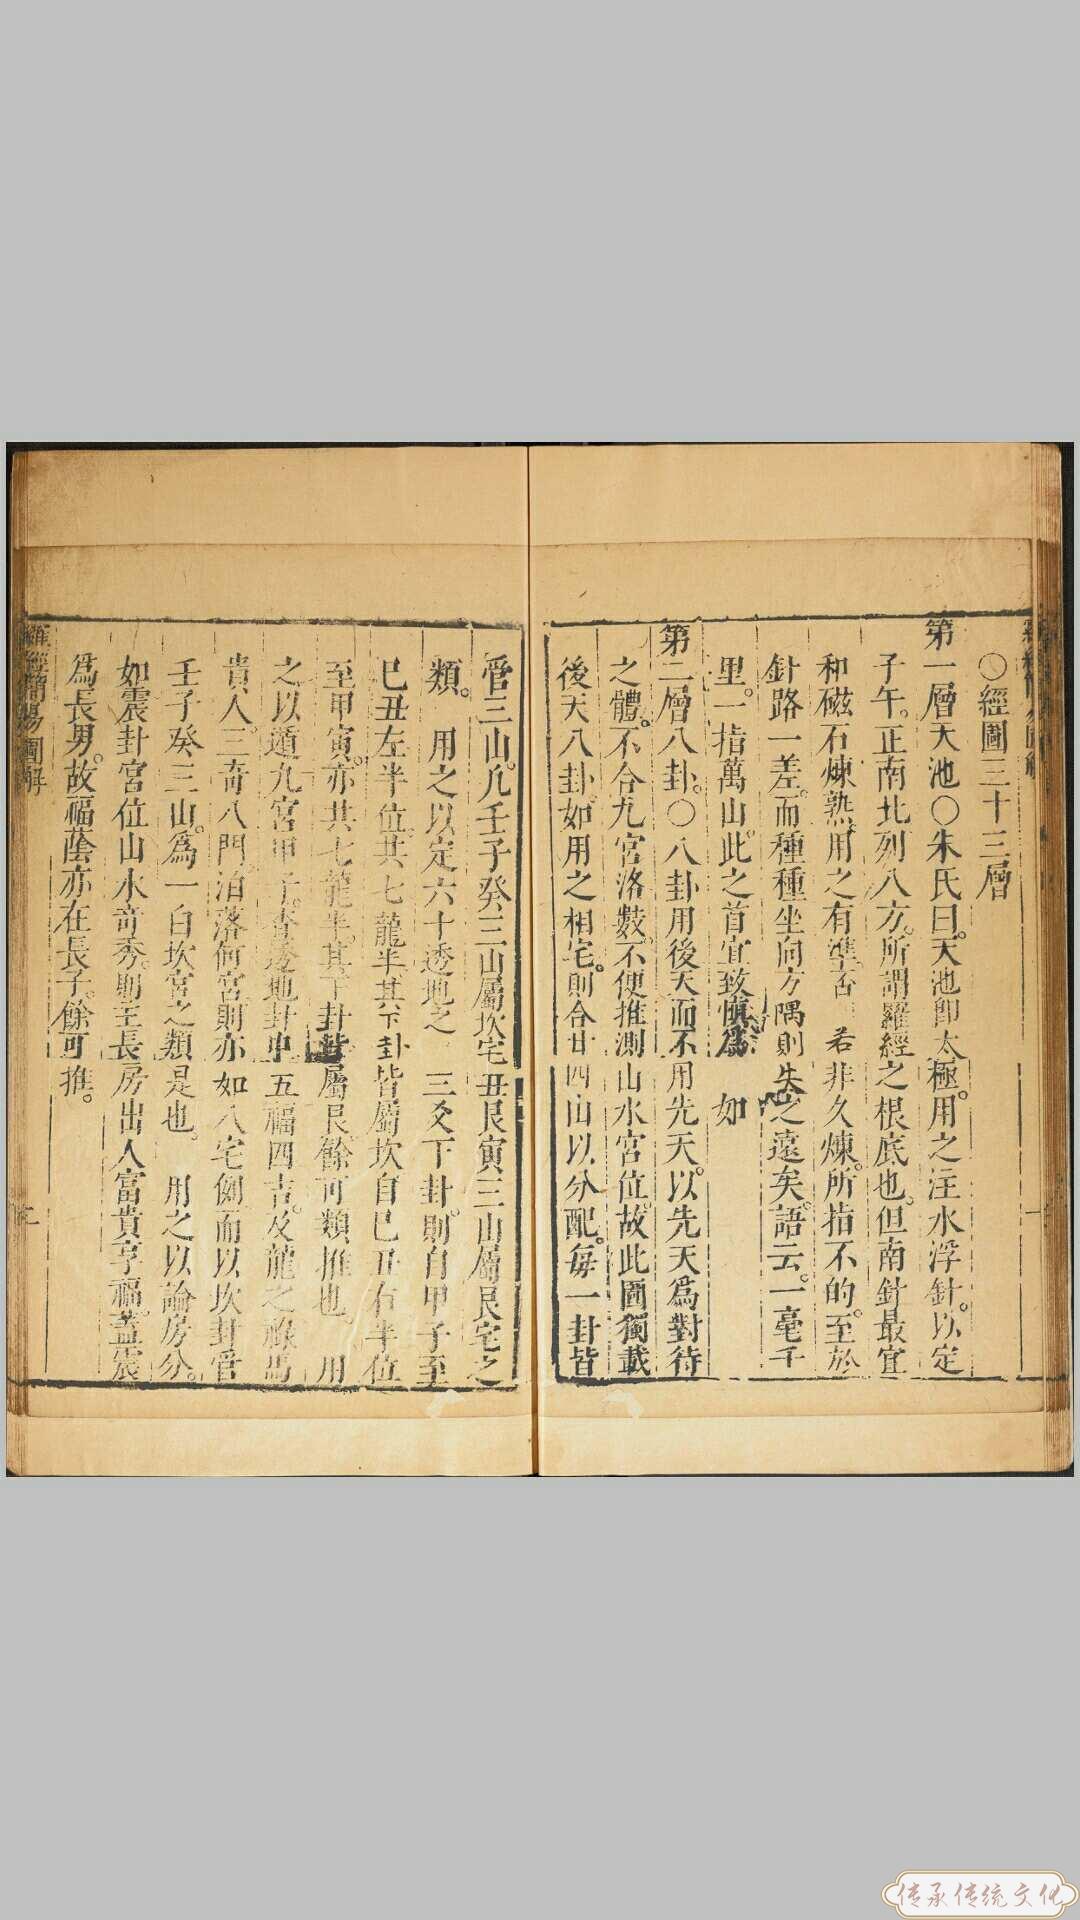 ○經圖三十三層
第一層天池○朱氏曰。天池即太極。用之注水浮針。以定
子午。正南北列八方。所謂羅經之根底也。但南針最宜
和磁石煉熟。用之有準。否 若非久煉。所指不的。至於
針路一差。而種種坐向方隅則失之遠矣。語云。一毫千
里。一指萬山。此之首宜致慎為 如
第二層八卦。○八卦用後天而不用先天。以先天為對待
之體。不合九宮洛數。不便推測山水宮位。故此圖獨載
後天八卦。如用之相宅。則合廿四山以分配。每一卦皆
管三山。凡壬子癸三山屬坎宅丑艮寅三山屬艮宅之
類。 用之以定六十透地之 三爻下卦。則自甲子至
巳丑左半位。共七龍半其下卦皆屬坎自巳丑右半位
至甲寅。亦共七龍半。其下卦皆屬艮。餘可類推也。 用
之以遁九宮甲子。查透地卦中 五福四吉。及龍之祿馬
貴人。三奇八門。泊落何宮。則亦如八宅例而以坎卦管
壬子癸三山。為一白坎宮之類是也。 用之以論房分。
如震卦宮位山水奇秀。則主長房出人富貴亨福。蓋震
為長男。故福蔭亦在長子。餘可推。
羅經簡易圖解
傳承傳統文化